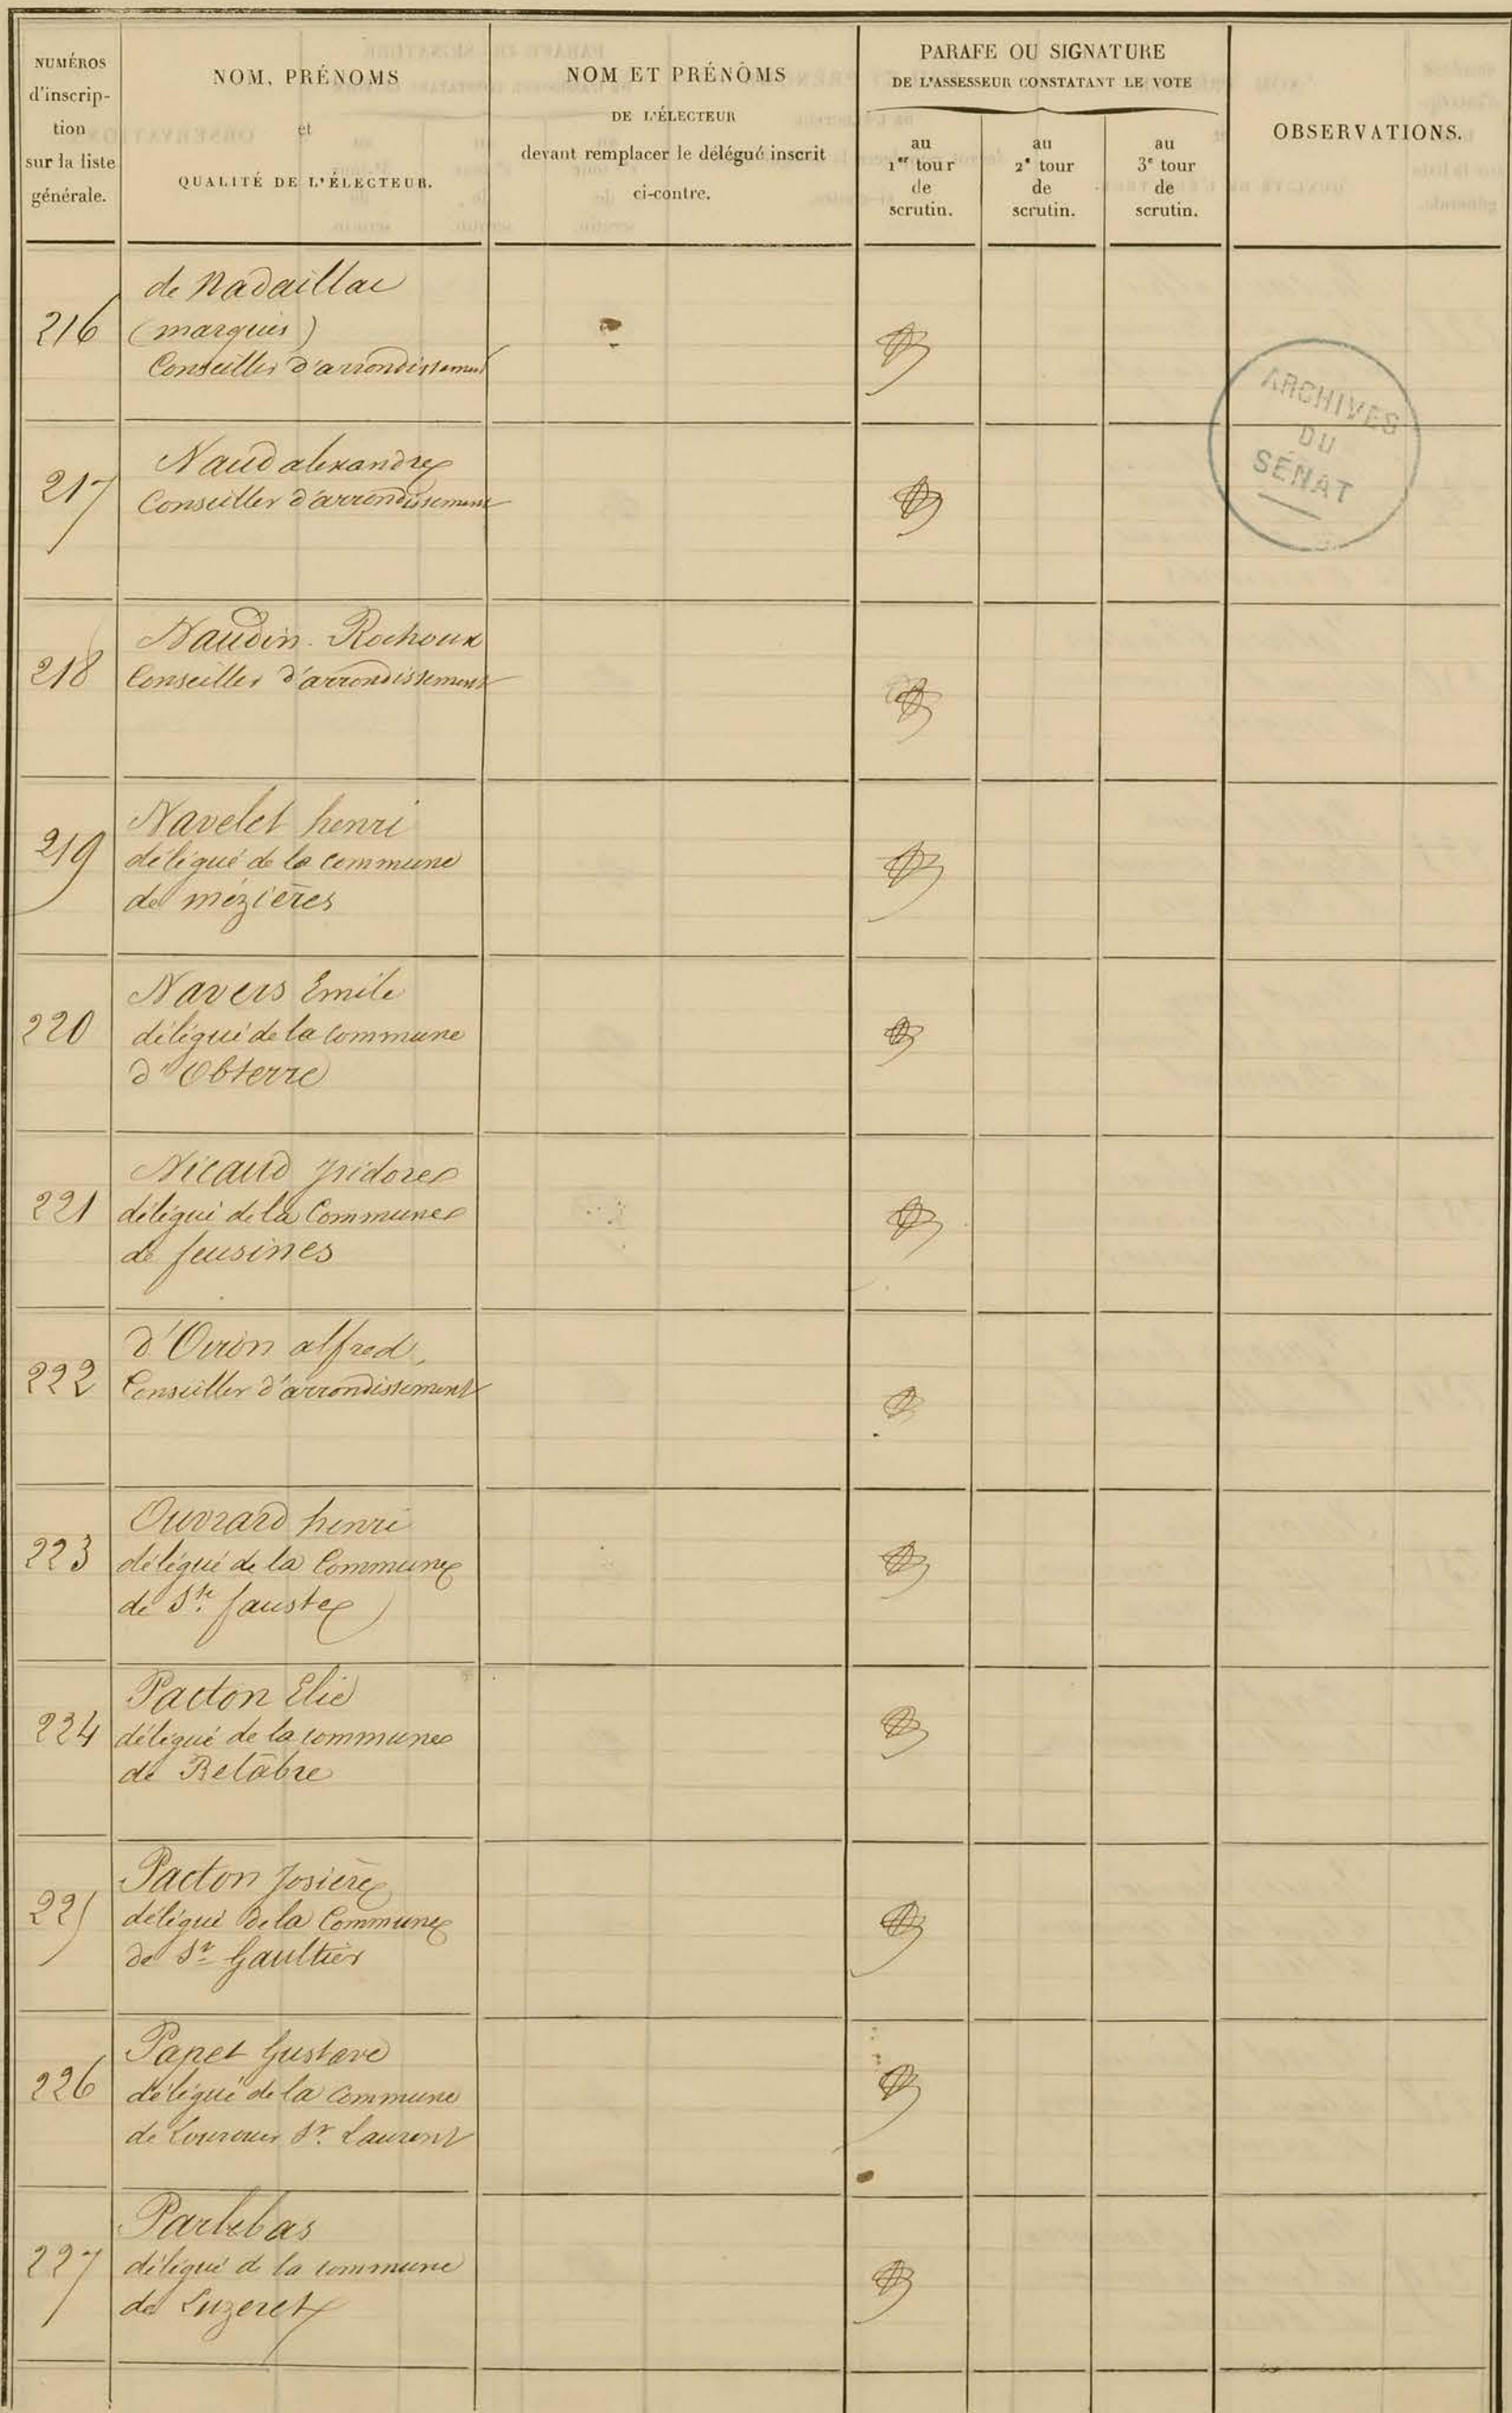 NUMÉROS
d'inscrip-
tion
sur la liste
générale.
NOM, PRÉNOMS
et
QUALITÉ DE L'ÉLECTEUR.
NOM ET PRÉNOMS
DE L'ÉLECTEUR
devant remplacer le délégué inscrit
ci-contre.
PARAFE OU SIGNATURE
DE L'ASSESSEUR CONSTATANT LE VOTE
au
1er tour
de
scrutin.
au
2e tour
de
scrutin.
au
3e tour
de
scrutin.
OBSERVATIONS.
de Nadaillac
216 (marquis)
Conseiller d'arrondissement
ARCHIVES
DU
SÉNAT
Naud alexandre
217 Conseiller d'arrondissement
Naudin-Rochoux
218 Conseiller d'arrondissement
Navelet henri
219 délégué de la commune
de mézières
Navers Emile
220 délégué de la commune
d'Obterre
Nicaud Isidore
221 délégué de la Commune
de feusines
d'Oiron alfred,
222 Conseiller d'arrondissement
Ouvrard henri
223 délégué de la Commune
de Ste fauste
Pacton Elie
224 délégué de la commune
de Belâbre
Pacton
225 délégué de la Commune
de St Gaultier
Papet Gustave
226 délégué de la commune
de Lourouer St Laurent
Parlebas
227 délégué de la commune
de Luzeret